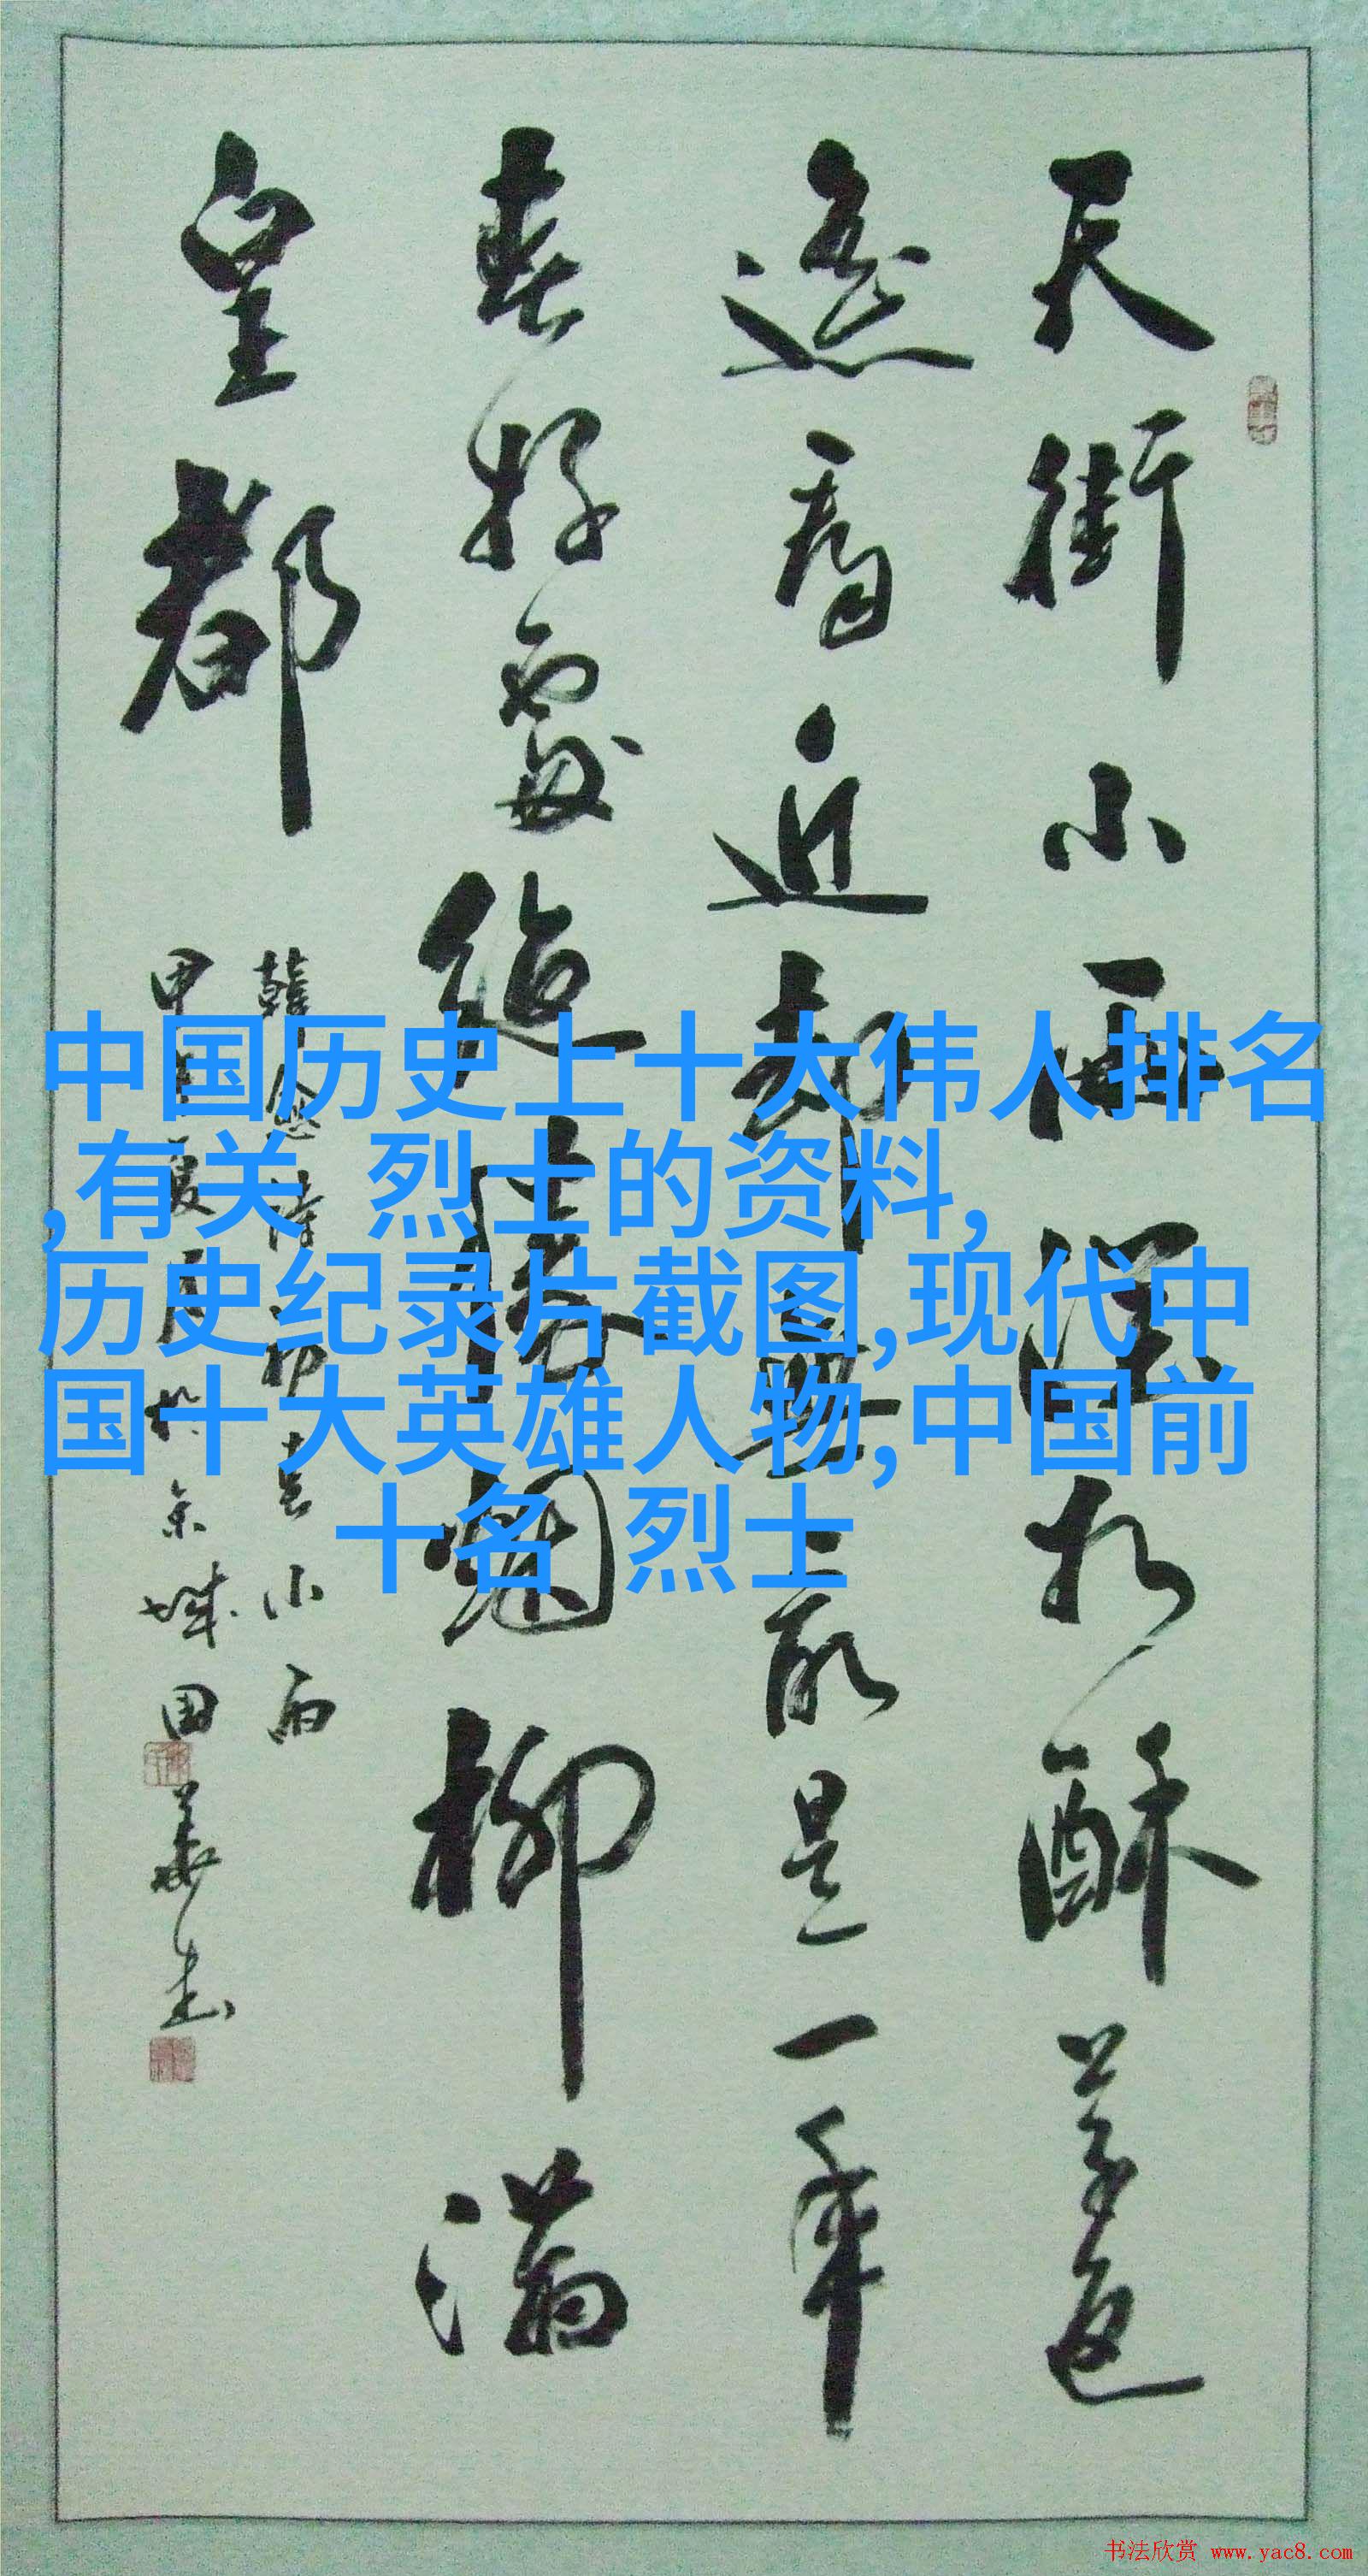 天街小雨潤如酥草色
遥看近却無最是一年
春好處絕勝烟柳满
皇都
韓愈诗初春小雨
甲夏月於京城国華书
中国历史上十大伟人排名
,有关 烈士的资料,
历史纪录片截图,现代中
国十大英雄人物,中国前
十名 烈士
书法欣赏 www.yac8.com